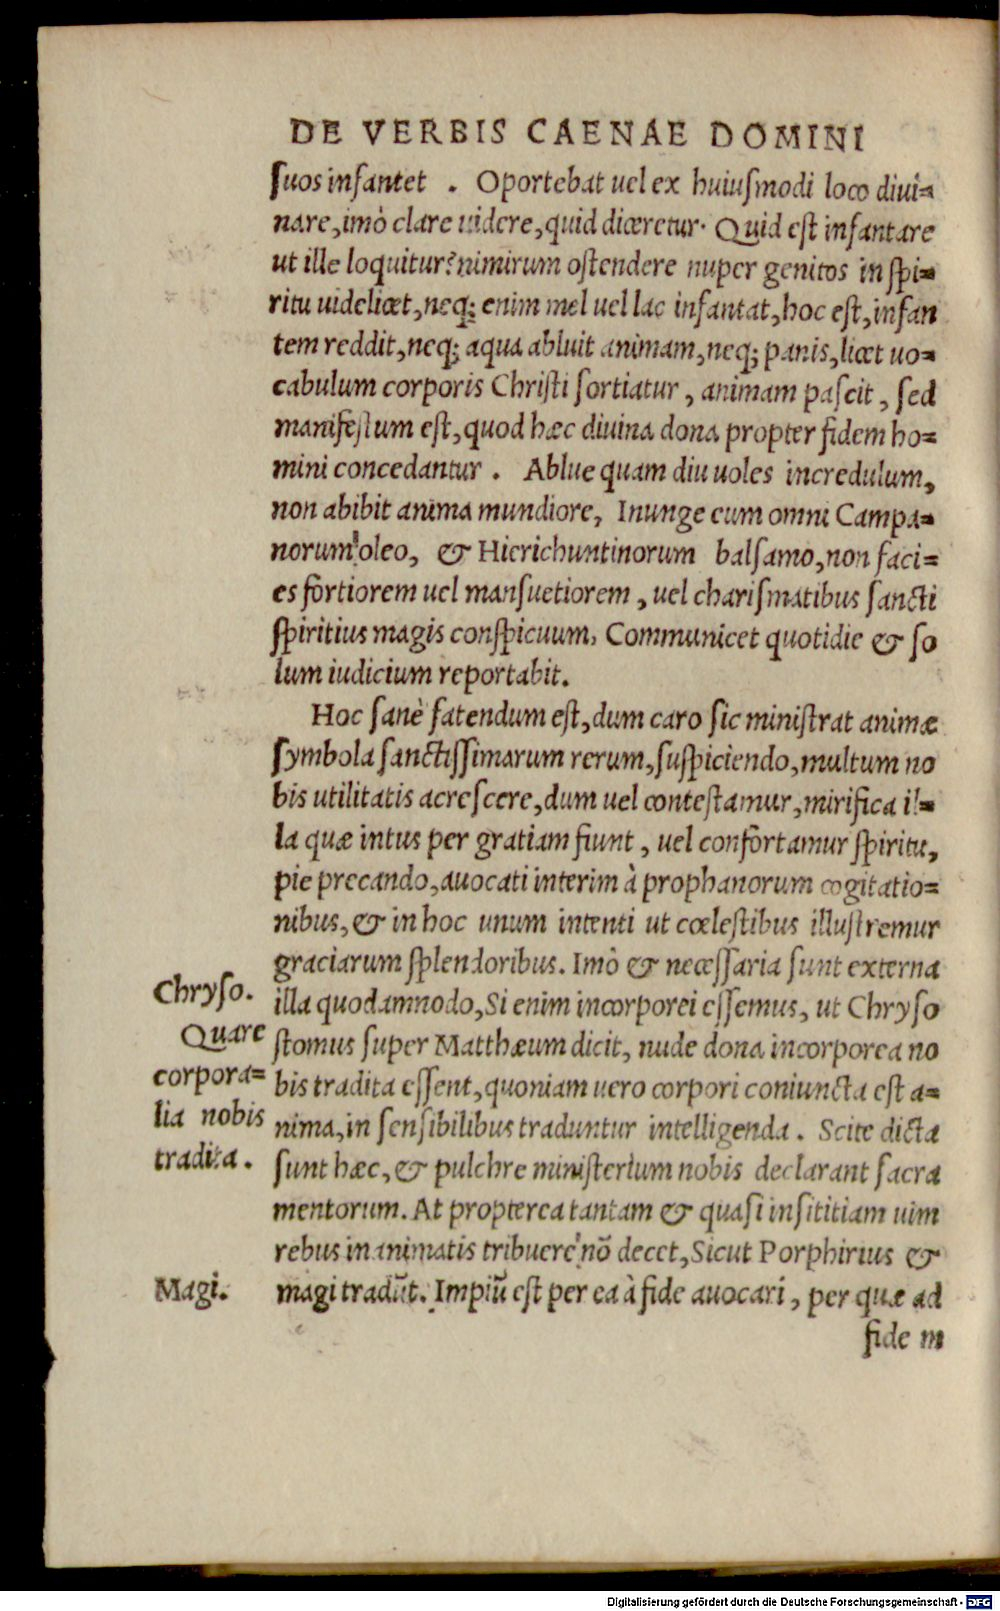 DE VERBIS CAENAE DOMINI
suos infantet . Oportebat uel ex huiusmodi loco diui=
nare, imò clare uidere, quid diceretur. Quid est infantare
ut ille loquitur? nimirum ostendere nuper genitos in spi=
ritu uidelicet, neq; enim mel uel lac infantat, hoc est, infan
tem reddit, neq; aqua abluit animam, neq; panis, licet uo=
cabulum corporis Christi sortiatur, animam pascit, sed
manifestum est, quod hæc diuina dona propter fidem ho=
mini concedantur . Ablue quam diu uoles incredulum,
non abibit anima mundiore, Inunge eum omni Campa=
norum oleo, & Hierichuntinorum balsamo, non faci=
es fortiorem uel mansuetiorem, uel charismatibus sancti
spiritius magis conspicuum, Communicet quotidie & so
lum iudicium reportabit.
Hoc sanè fatendum est, dum caro sic ministrat animæ
symbola sanctissimarum rerum, suspiciendo, multum no
bis utilitatis acrescere, dum uel contestamur, mirifica il=
la quæ intus per gratiam fiunt, uel confortamur spiritu,
pie precando, auocati interim à prophanorum cogitatio=
nibus, & in hoc unum intenti ut cœlestibus illustremur
graciarum splendoribus. Imò & necessaria sunt externa
illa quodamnodo, Si enim incorporei essemus, ut Chryso
stomus super Matthæum dicit, nude dona incorporea no
bis tradita essent, quoniam uero corpori coniuncta est a=
nima, in sensibilibus traduntur intelligenda . Scite dicta
sunt hæc, & pulchre ministerium nobis declarant sacra
mentorum. At propterea tantam & quasi insititiam uim
rebus inanimatis tribuere nõ decet, Sicut Porphirius &
magi tradũt. Impiũ est per ea à fide auocari, per quæ ad
fide m
Chryso.
Quare
corpora=
lia nobis
tradita .
Magi.
Digitalisierung gefördert durch die Deutsche Forschungsgemeinschaft - DFG